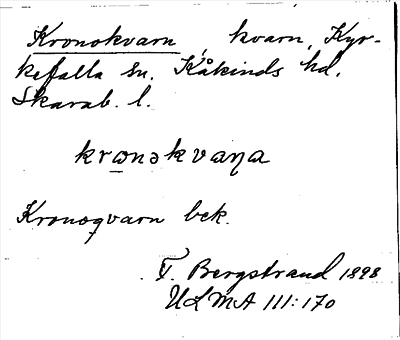 Kronokvarn, kvarn, Kyr-
kefalla sn. Kåkinds hd.
Skarab. l.
krωnəkvaɳa
Kronoqvarn bek.
T. Bergstrand 1898
ULMA 111:170